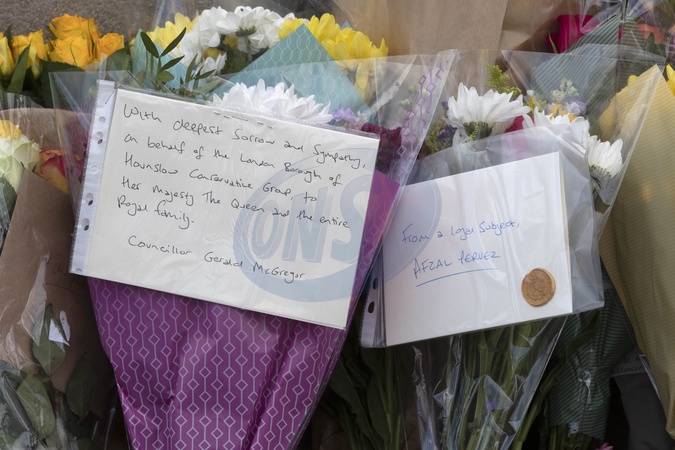 With deepest Sorrow and Sympathy,
on behalf of the London Borough of
Hounslow Conservative Group, to
Her Majesty The Queen and the entire
Royal family.
Councillor Gerald McGregor
CONS
From a loyal Subject,
AFZAL PERVEZ